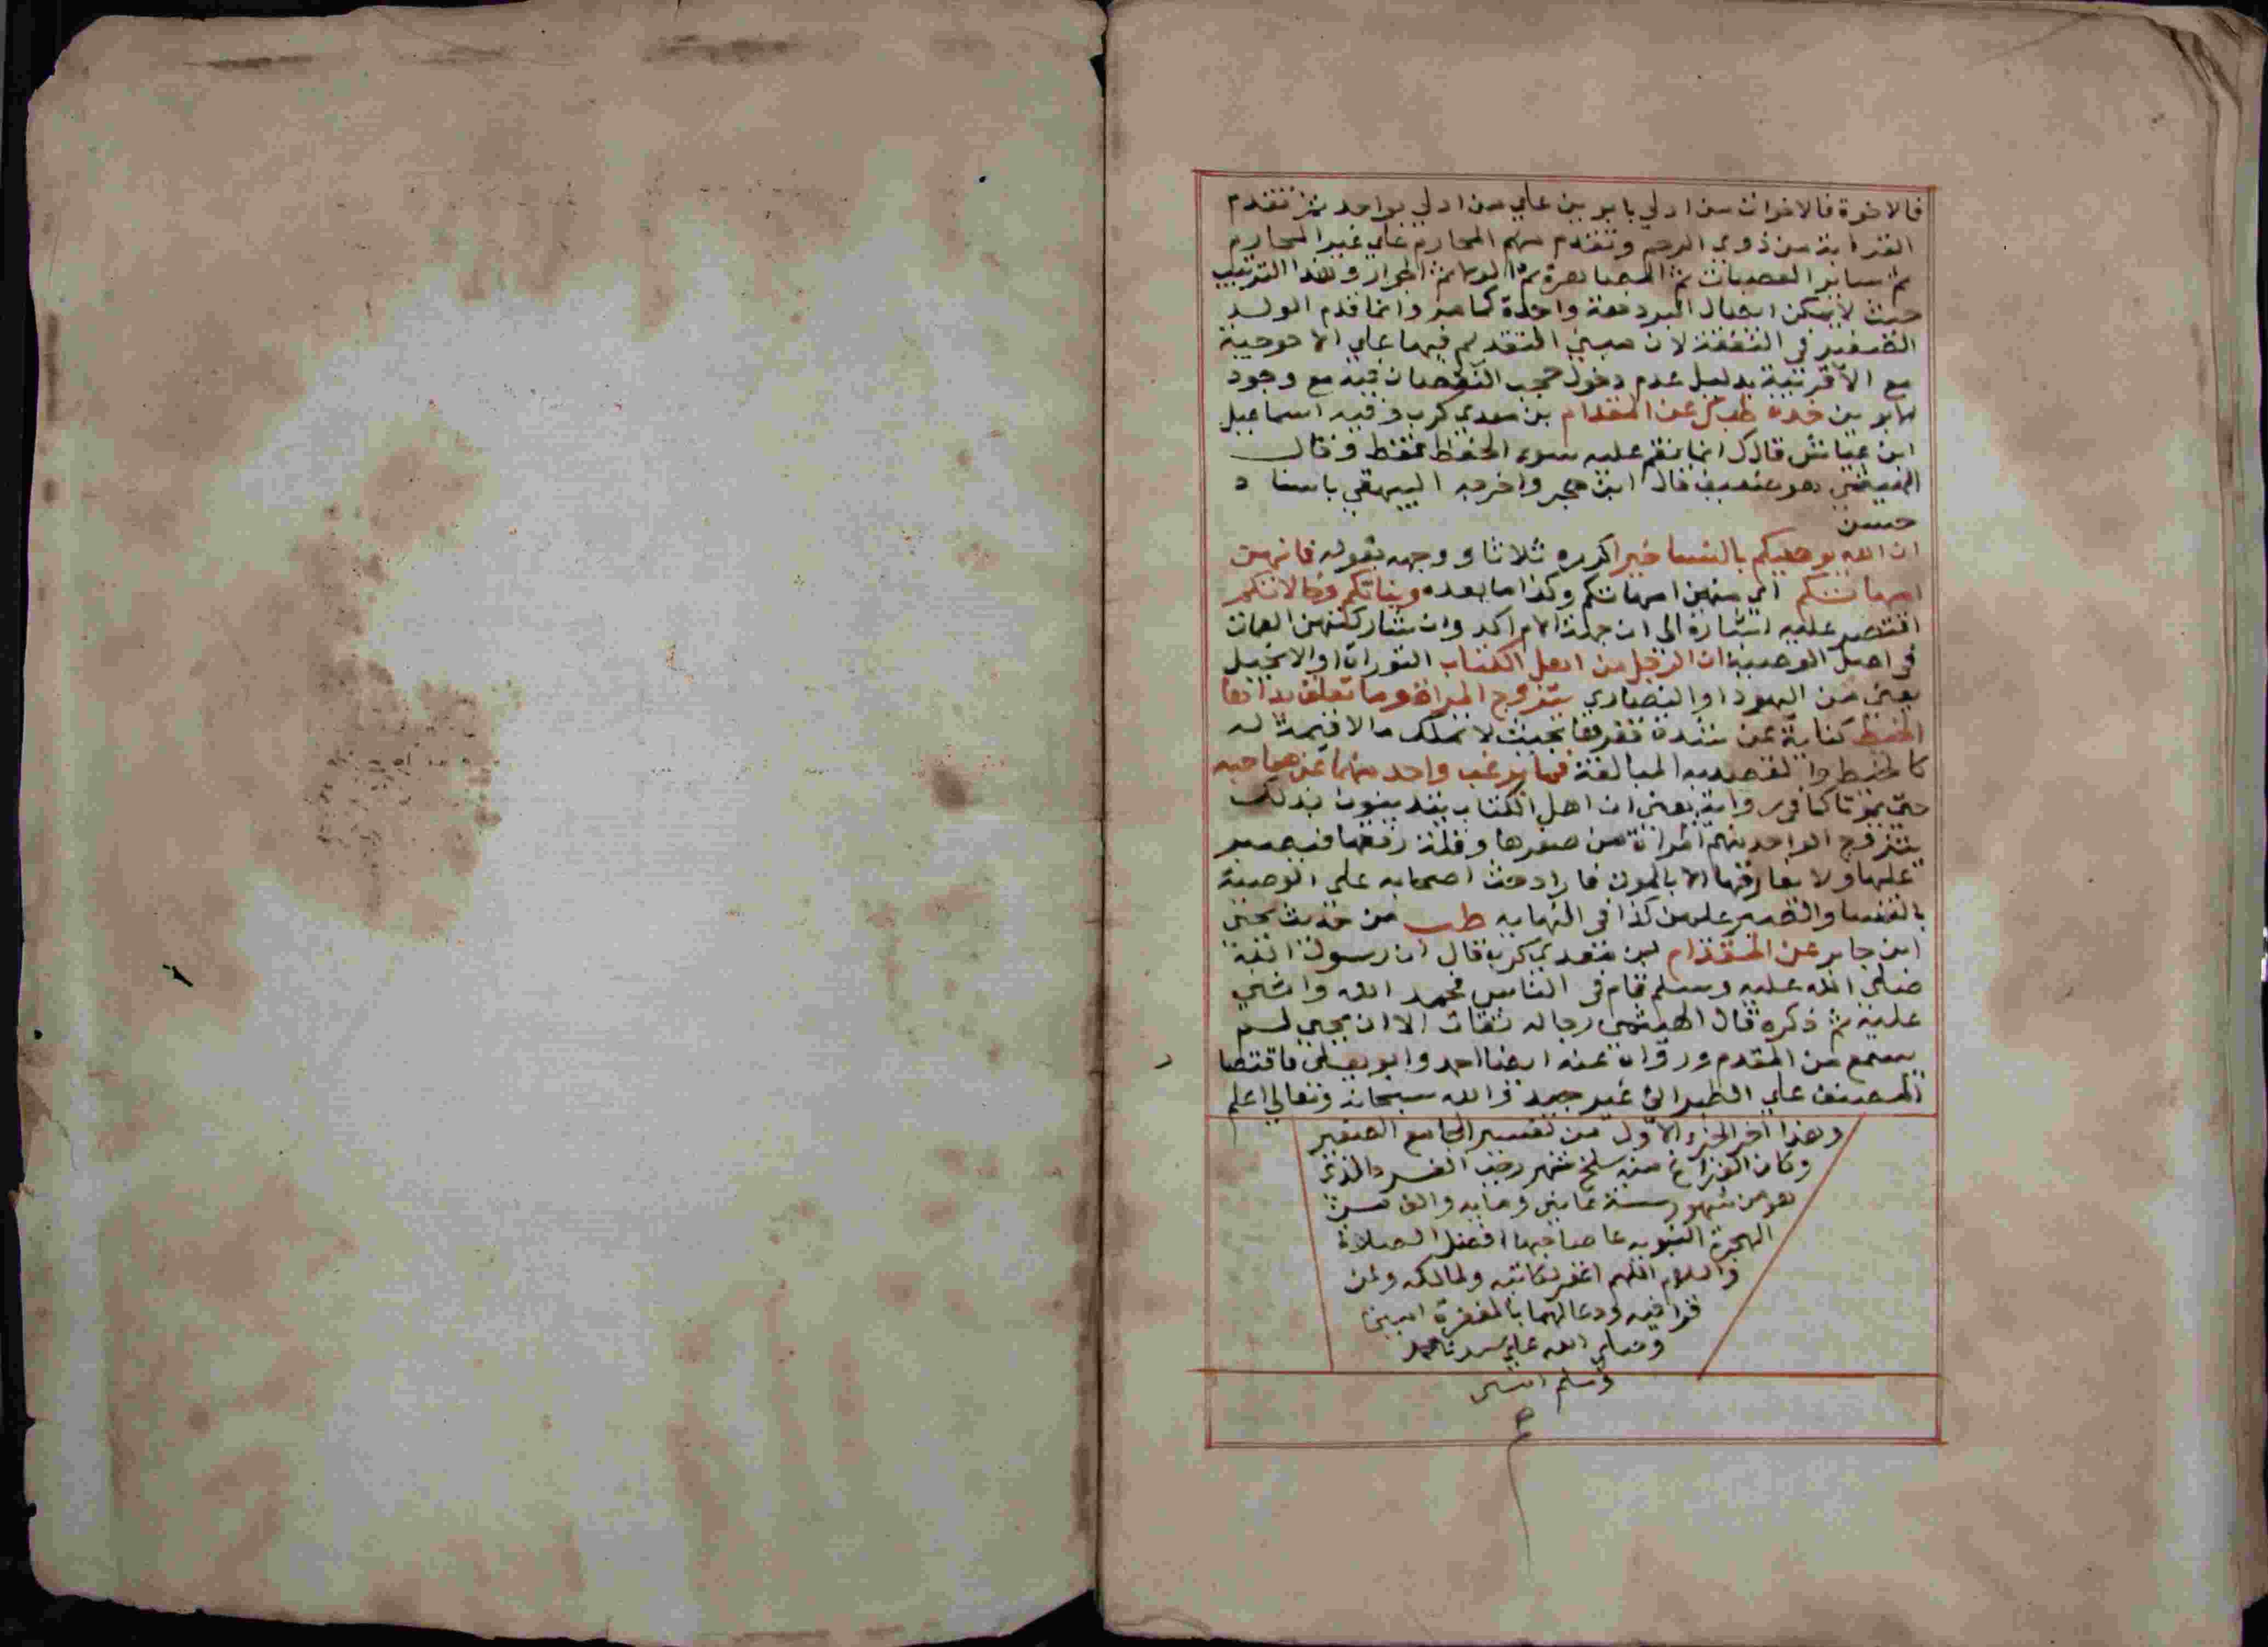 فالاخوة فالاخوات من ادلي بابوين علي من ادلي بواحد ثم تقدم
القرابة من ذوي الرحم وتقدم منهم المحارم علي غير المحارم
ثم ساير العصبات ثم المصاهرة ثم الولا ثم الجوار وهذا الترتيب
حيث لا يمكن ايصال البر دفعة واحدة كما مر وانما قدم الولد
الصغير في النفقة لان مبني التقديم فيها علي الاحوجية
مع الاقربية بدليل عدم دخول حجب النقصان فيه مع وجود
ابوين خده طب ك عن المقدام بن معدي كرب وفيه اسماعيل
ابن عياش قال ك انما نقم عليه سوء الحفظ فقط وقال
الهيثمي هو ضعيف قال ابن حجر واخرجه البيهقي باسناد
حسن
ان الله يوصيكم بالنسا خيرا كرره ثلاثا ووجهه بقوله فانهن
امهاتكم اي منهن امهاتكم وكذا ما بعده وبناتكم وخالاتكم
اقتصر عليه اشارة الي ان جهة الام اكد وان شاركتهن العمات
في اصل الوصية ان الرجل من اهل الكتاب التوراة او الانجيل
يعني من اليهود او النصاري يتزوج المراة وما تعلق يداها
الخيط كناية عن شدة فقرها بحيث لا تملك ما لا قيمة له
كالخيط والقصد به المبالغة فما يرغب واحد منهما عن صاحبه
حتي يموتا كما في رواية يعني ان اهل الكتاب يتدينون بذلك
يتزوج الواحد منهم المراة من صغرها وقلة رفقها فيصبر
عليها ولا يفارقها الا بالموت فاراد حث اصحابه علي الوصية
بالنسا والصبر عليهن كذا في النهايه طب من حديث يحيي
ابن جابر عن المقدام بن معدي كرب قال ان رسول الله
صلي الله عليه وسلم قام في الناس فحمد الله واثني
عليه ثم ذكره قال الهيثمي رجاله ثقات الا ان يحيي لم
يسمع من المقدم ورواه عنه ايضا احمد وابو يعلي فاقتصا
المصنف علي الطبراني غير جيد والله سبحانه وتعالي اعلم
وهذا اخر الجزء الاول من تفسير الجامع الصغير
وكان الفراغ منه سلخ شهر رجب الفرد الذي
هو من شهور سنة ثمانين ومايه والف من
الهجرة النبويه عا صاحبها افضل الصلاة
والسلام اللهم اغفر لكاتبه ولمالكه ولمن
قرا فيه ودعا لهما بالمغفرة امين
وصلي الله علي سيدنا محمد
وسلم